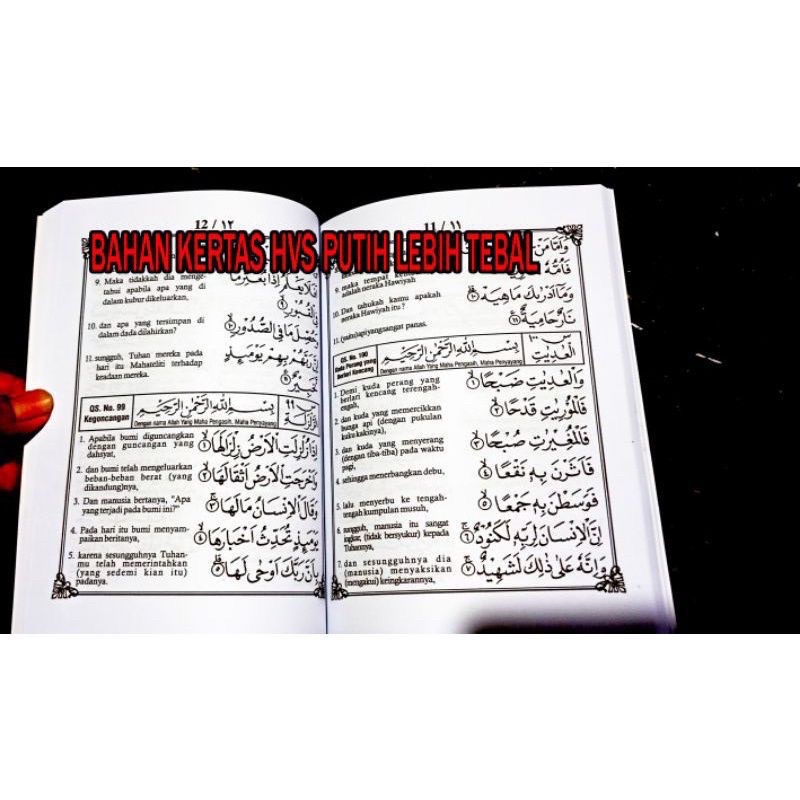 BAHAN KERTAS HVS PUTIH LEBIH TEBAL
11 / ١١
وَاَمَّا مَنْ
فَاُمُّهٗ
maka tempat
adalah neraka Hawiyah
10. Dan tahukah kamu apakah
neraka Hawiyah itu?
وَمَآ اَدْرٰىكَ مَاهِيَهْ ۗ ١٠
11. (yaitu) api yang sangat panas.
نَارٌ حَامِيَةٌ ١١
QS. No. 100
Kuda Perang yang
Berlari Kencang
بِسْمِ اللّٰهِ الرَّحْمٰنِ الرَّحِيْمِ
Dengan nama Allah Yang Maha Pengasih, Maha Penyayang
العٰديٰت
1. Demi kuda perang yang
berlari kencang terengah-
engah,
وَالْعٰدِيٰتِ ضَبْحًا ١
2. dan kuda yang memercikkan
bunga api (dengan pukulan
kuku kakinya),
فَالْمُوْرِيٰتِ قَدْحًا ٢
3. dan kuda yang menyerang
(dengan tiba-tiba) pada waktu
pagi,
فَالْمُغِيْرٰتِ صُبْحًا ٣
4. sehingga menerbangkan debu,
فَاَثَرْنَ بِهٖ نَقْعًا ٤
5. lalu menyerbu ke tengah-
tengah kumpulan musuh,
فَوَسَطْنَ بِهٖ جَمْعًا ٥
6. sungguh, manusia itu sangat
ingkar, (tidak bersyukur) kepada
Tuhannya,
اِنَّ الْاِنْسَانَ لِرَبِّهٖ لَكَنُوْدٌ ٦
7. dan sesungguhnya dia
(manusia) menyaksikan
(mengakui) keingkarannya,
وَاِنَّهٗ عَلٰى ذٰلِكَ لَشَهِيْدٌ ٧
12 / ١٢
9. Maka tidakkah dia menge-
tahui apabila apa yang di
dalam kubur dikeluarkan,
اَفَلَا يَعْلَمُ اِذَا بُعْثِرَ مَا
فِى الْقُبُوْرِ ٩
10. dan apa yang tersimpan di
dalam dada dilahirkan?
وَحُصِّلَ مَا فِى الصُّدُوْرِ ١٠
11. sungguh, Tuhan mereka pada
hari itu Mahateliti terhadap
keadaan mereka.
اِنَّ رَبَّهُمْ بِهِمْ يَوْمَىِٕذٍ
لَّخَبِيْرٌ ١١
QS. No. 99
Kegoncangan
بِسْمِ اللّٰهِ الرَّحْمٰنِ الرَّحِيْمِ
Dengan nama Allah Yang Maha Pengasih, Maha Penyayang
1. Apabila bumi diguncangkan
dengan guncangan yang
dahsyat,
اِذَا زُلْزِلَتِ الْاَرْضُ زِلْزَالَهَا ١
2. dan bumi telah mengeluarkan
beban-beban berat (yang
dikandung)nya,
وَاَخْرَجَتِ الْاَرْضُ اَثْقَالَهَا ٢
3. Dan manusia bertanya, "Apa
yang terjadi pada bumi ini?"
وَقَالَ الْاِنْسَانُ مَا لَهَا ٣
4. Pada hari itu bumi menyam-
paikan beritanya,
يَوْمَىِٕذٍ تُحَدِّثُ اَخْبَارَهَا ٤
5. karena sesungguhnya Tuhan-
mu telah memerintahkan
(yang sedemi kian itu)
padanya.
بِاَنَّ رَبَّكَ اَوْحٰى لَهَا ٥